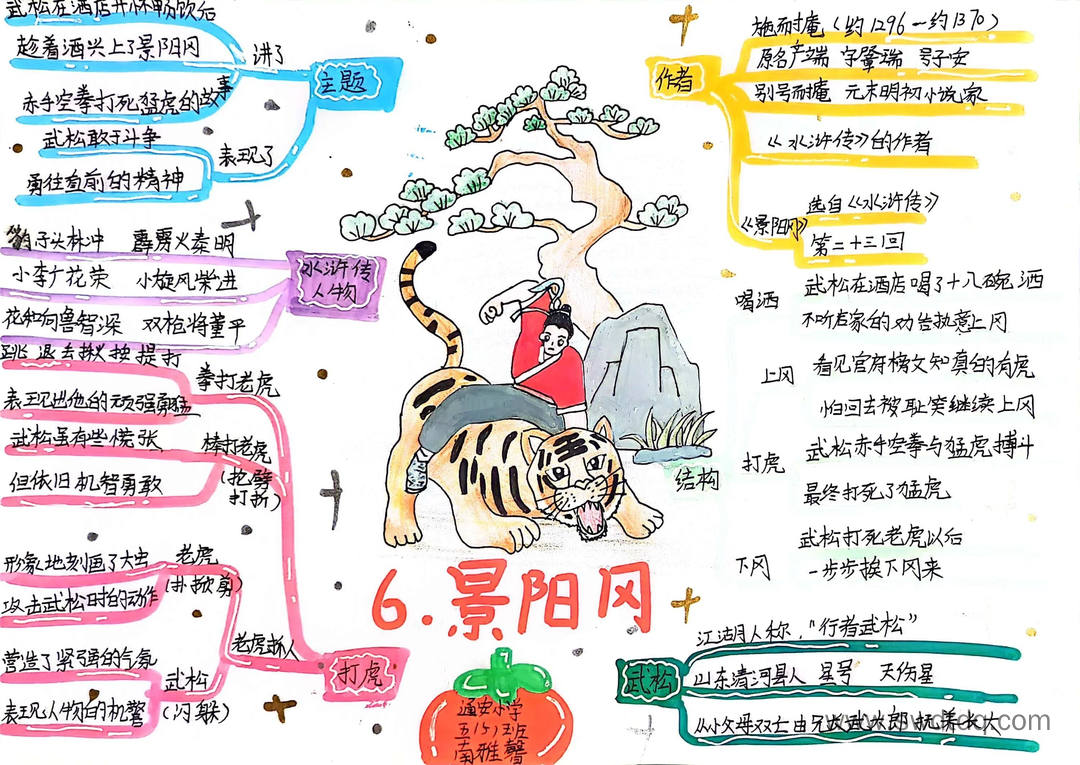 武松在酒店开怀畅饮后
趁着酒兴上了景阳冈
讲了
主题
赤手空拳打死猛虎的故事
武松敢于斗争
表现了
勇往直前的精神
豹子头林冲 霹雳火秦明
小李广花荣 小旋风柴进
水浒传
人物
花和尚鲁智深 双枪将董平
跳 退 去 揪 按 提 打
拳打老虎
表现出他的顽强勇猛
武松虽有些慌张
棒打老虎
但依旧机智勇敢
(抡劈
打折)
形象地刻画了大虫
老虎
(扑掀剪)
攻击武松时的动作
老虎抓人
营造了紧张的气氛
武松
打虎
表现人物的机警
(闪躲)
6.景阳冈
五(5)班
南雅馨
作者
施耐庵(约1296一约1370)
原名产端 字肇瑞 号子安
别号耐庵 元末明初小说家
《水浒传》的作者
《景阳冈》
选自《水浒传》
第二十三回
结构
喝洒
武松在酒店喝了十八碗洒
不听店家的劝告执意上冈
上冈
看见官府榜文知真的有虎
怕回去被耻笑继续上冈
打虎
武松赤手空拳与猛虎搏斗
最终打死了猛虎
下冈
武松打死老虎以后
一步步挨下冈来
武松
江湖人称,"行者武松"
山东清河县人 星号 天伤星
从小父母双亡由兄攻武大郎抚养长大